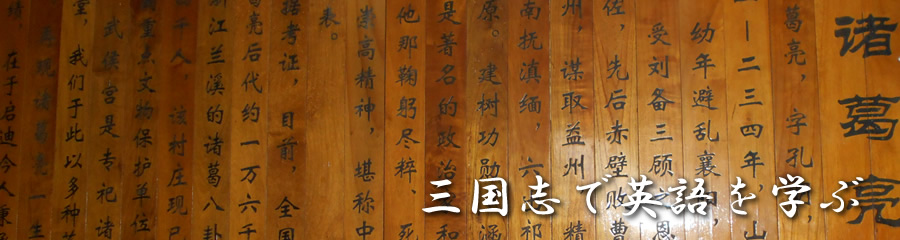 诸葛亮
葛亮，字孔
—二三四年，山
幼年避乱襄
受刘备三顾之恩
佐，先后赤壁败曹
州，谋取益州，精
南抚滇缅，六祁
原。建树功勋，涵
是著名的政治和
他那鞠躬尽瘁、死
崇高精神，堪称中
表。
据考证，目前，全国
葛亮后代约一万六千
浙江兰溪的诸葛八卦
千人，该村庄现已
国重点文物保护单位
武侯宫是专祀诸
堂，我们于此以多种
再现诸葛亮一生
在于启迪今人秉
三国志で英語を学ぶ